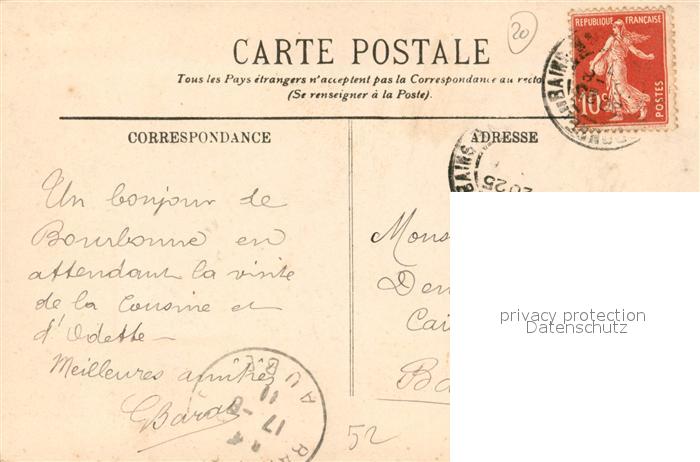 20
CARTE POSTALE
Tous les Pays étrangers n'acceptent pas la Correspondance au recto
(Se renseigner à la Poste).
RÉPUBLIQUE FRANÇAISE
10c
POSTES
CORRESPONDANCE
ADRESSE
Un bonjour de
Bourbonne en
attendant la visite
de la Cousine et
d'Odette
Meilleures amitiés
Mons
Den
Cai
Ba
privacy protection
Datenschutz
BAINS
BAINS
2025
AUBE
11
17
52